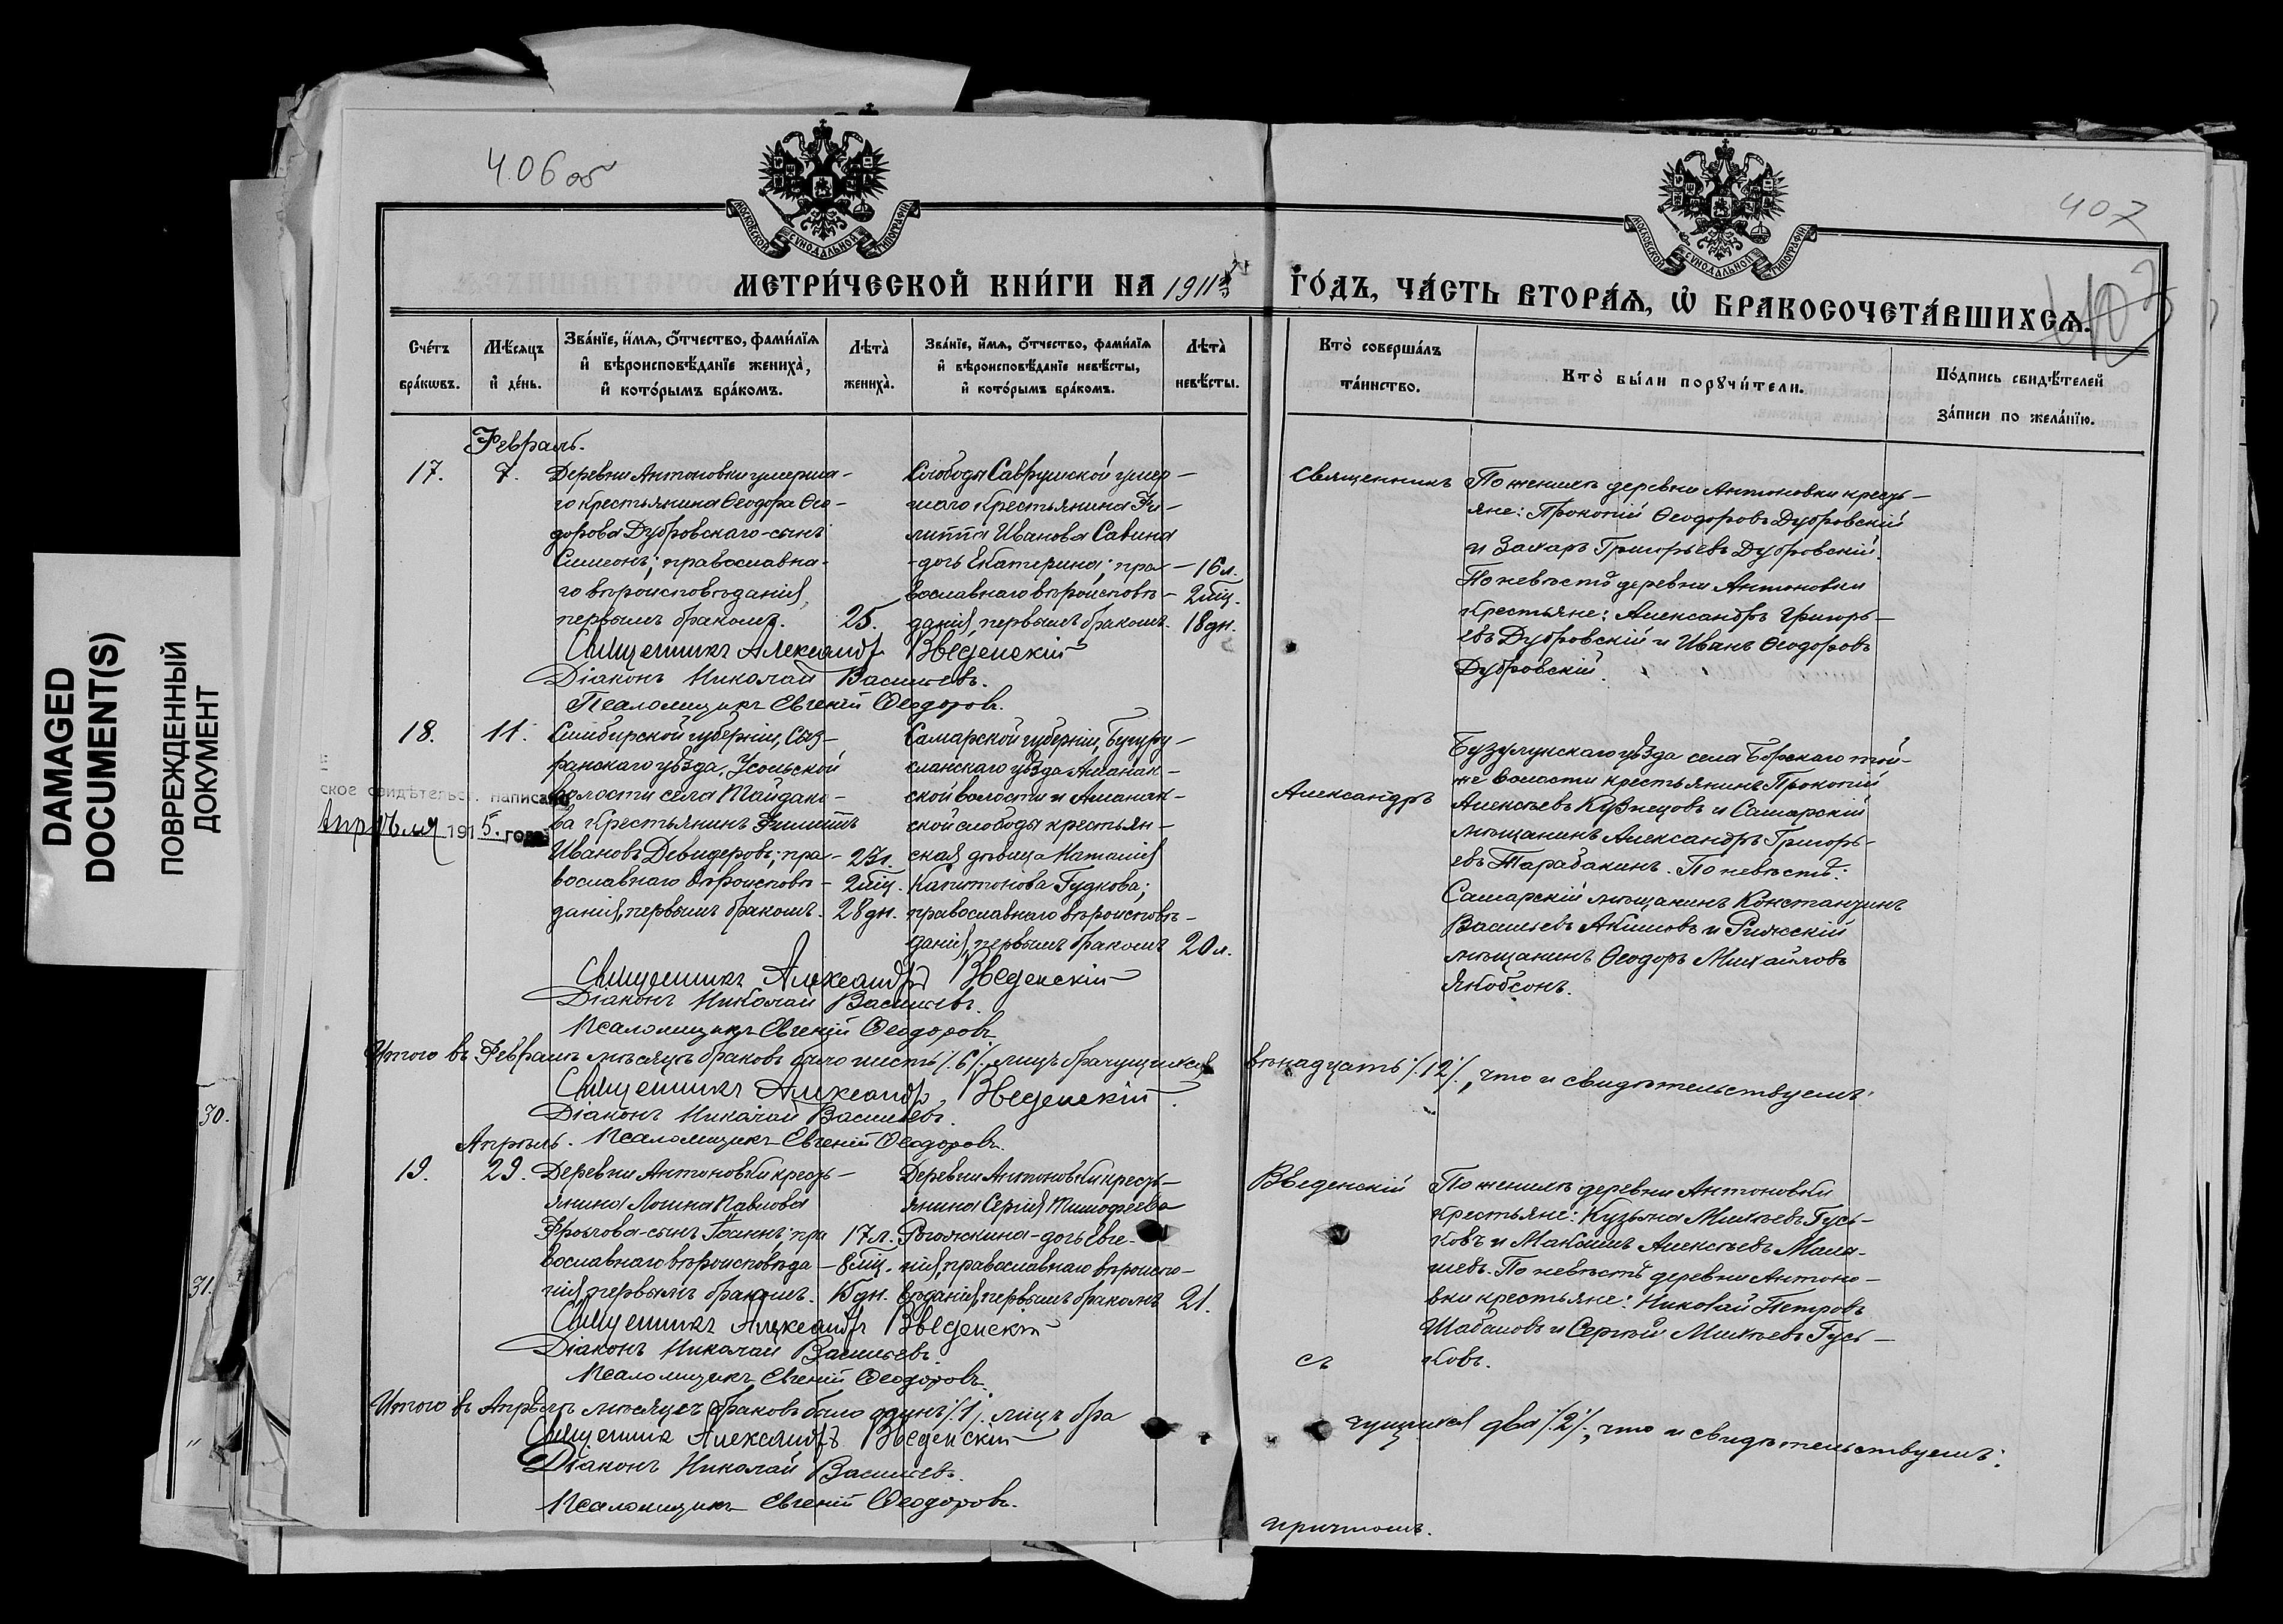 DAMAGED
DOCUMENT(S)
ПОВРЕЖДЕННЫЙ
ДОКУМЕНТ
406 об
407
МОСКОВСКОЙ СѴНОДАЛЬНОЙ ТИПОГРАФІИ
МОСКОВСКОЙ СѴНОДАЛЬНОЙ ТИПОГРАФІИ
МЕТРИ́ЧЕСКОЙ КНИ́ГИ НА 1911
ГО́ДЪ, ЧА́СТЬ ВТОРА́Я, Ѽ БРАКОСОЧЕТА́ВШИХСЯ.
Сче́тъ бра́кѡвъ.
Мѣ́сяцъ и҆ де́нь.
Зва́нїе, и҆́мя, ѻ҆́тчество, фами́лїя и҆ вѣроисповѣ́данїе жениха̀, и҆ кото́рымъ бра́комъ.
Лѣта̀ жениха̀.
Зва́нїе, и҆́мя, ѻ҆́тчество, фами́лїя и҆ вѣроисповѣ́данїе невѣ́сты, и҆ кото́рымъ бра́комъ.
Лѣта̀ невѣ́сты.
Кто̀ соверша́лъ та́инство.
Кто̀ бы́ли порꙋчи́тели.
По́дпись свидѣ́телей за́писи по жела́нїю.
Февраль.
17.
7.
Деревни Антоновки умерша-
го крестьянина Ѳеодора Ѳео-
дорова Дубровскаго-сынъ
Симеонъ; православна-
го вѣроисповѣданія,
первымъ бракомъ.
25.
Слободы Саврушской умер-
шаго крестьянина Фи-
липпа Иванова Савина
-дочь Екатерина; пра-
вославнаго вѣроисповѣ-
данія, первымъ бракомъ.
16 л.
2 мѣс.
18 дн.
Священникъ
По женихѣ деревни Антоновки кресть-
яне: Прокопій Ѳеодоровъ Дубровскій
и Захаръ Григорьевъ Дубровскій.
По невѣстѣ деревни Антоновки
крестьяне: Александръ Григорь-
евъ Дубровскій и Иванъ Ѳеодоровъ
Дубровскій.
Священникъ Александръ Введенскій
Діаконъ Николай Васильевъ.
Псаломщикъ Евгеній Ѳеодоровъ.
18.
11.
Симбирской губерніи, Сыз-
ранскаго уѣзда, Усольской
волости села Майдако-
ва крестьянинъ Филиппъ
Ивановъ Девидеровъ; пра-
вославнаго вѣроисповѣ-
данія, первымъ бракомъ.
2 мѣс.
28 дн.
Самарской губерніи, Бугуру-
сланскаго уѣзда Аманак-
ской волости и Аманак-
ской слободы крестьян-
ская дѣвица Наталія
Капитонова Гуднова;
православнаго вѣроисповѣ-
данія, первымъ бракомъ
20 л.
Александръ
Бузулукскаго уѣзда села Борскаго той-
же волости крестьянинъ Прокопій
Алексѣевъ Кузнецовъ и Самарскій
мѣщанинъ Александръ Григорь-
евъ Тарабакинъ. По невѣстѣ:
Самарскій мѣщанинъ Константинъ
Васильевъ Акимовъ и Рижскій
мѣщанинъ Ѳеодоръ Михайловъ
Якобсонъ.
ское свидѣтельс. написано
Апрѣля 1915. года
Священникъ Александръ Введенскій
Діаконъ Николай Васильевъ.
Псаломщикъ Евгеній Ѳеодоровъ.
Итого въ Февралѣ мѣсяцѣ браковъ было шесть /.6/. лицъ брачущихся
двѣнадцать /.12/., что и свидѣтельствуемъ:
Священникъ Александръ Введенскій.
Діаконъ Николай Васильевъ.
Псаломщикъ Евгеній Ѳеодоровъ.
Апрѣль.
19.
29.
Деревни Антоновки кресть-
янина Логина Павлова
Фролова-сынъ Іоаннъ; пра
вославнаго вѣроисповѣда-
нія, первымъ бракомъ.
17 л.
8 мѣс.
15 дн.
Деревни Антоновки кресть-
янина Сергія Тимоѳеева
Рогожкина-дочь Евге-
нія, православнаго вѣроиспо-
вѣданія, первымъ бракомъ
21.
Введенскій
По женихѣ деревни Антоновки
крестьяне: Кузьма Михѣевъ Гусь-
ковъ и Максимъ Алексѣевъ Мала-
шевъ. По невѣстѣ деревни Антоно-
вки крестьяне: Николай Петровъ
Шабаловъ и Сергѣй Михѣевъ Гусь-
ковъ.
съ
Священникъ Александръ Введенскій
Діаконъ Николай Васильевъ.
Псаломщикъ Евгеній Ѳеодоровъ.
Итого въ Апрѣлѣ мѣсяцѣ браковъ было одинъ /.1/. лицъ бра
чущихся два /.2/., что и свидѣтельствуемъ:
Священникъ Александръ Введенскій
Діаконъ Николай Васильевъ.
Псаломщикъ Евгеній Ѳеодоровъ.
причтомъ.
30.
31.